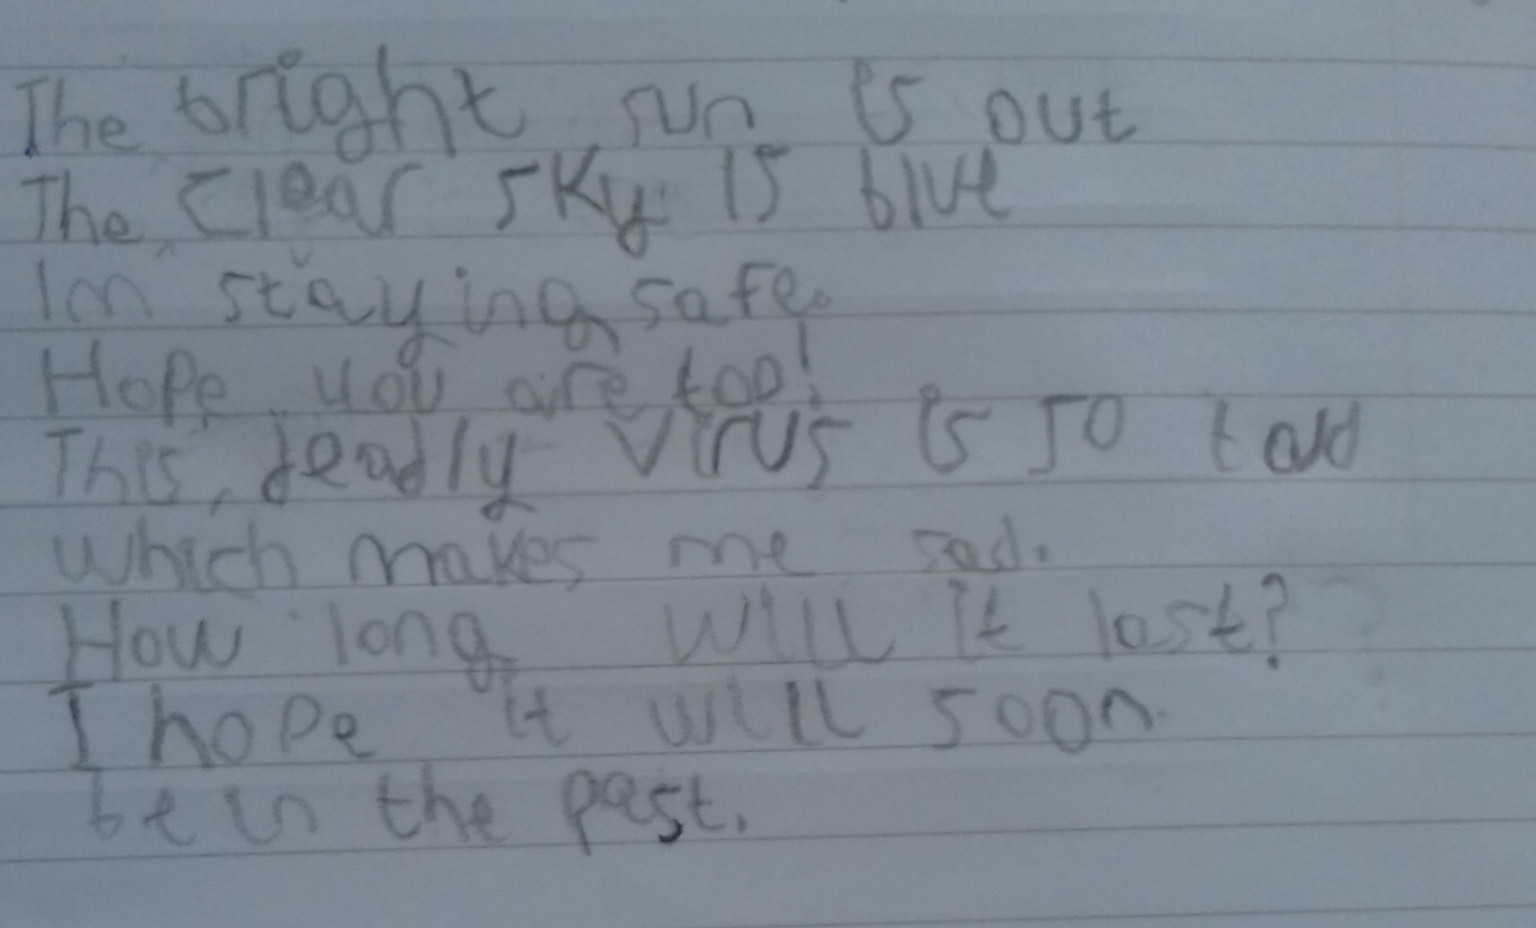 The bright sun is out
The clear sky is blue
Im staying safe.
Hope you are too!
This deadly virus is so bad
which makes me sad.
How long will it last?
I hope it will soon
be in the past.